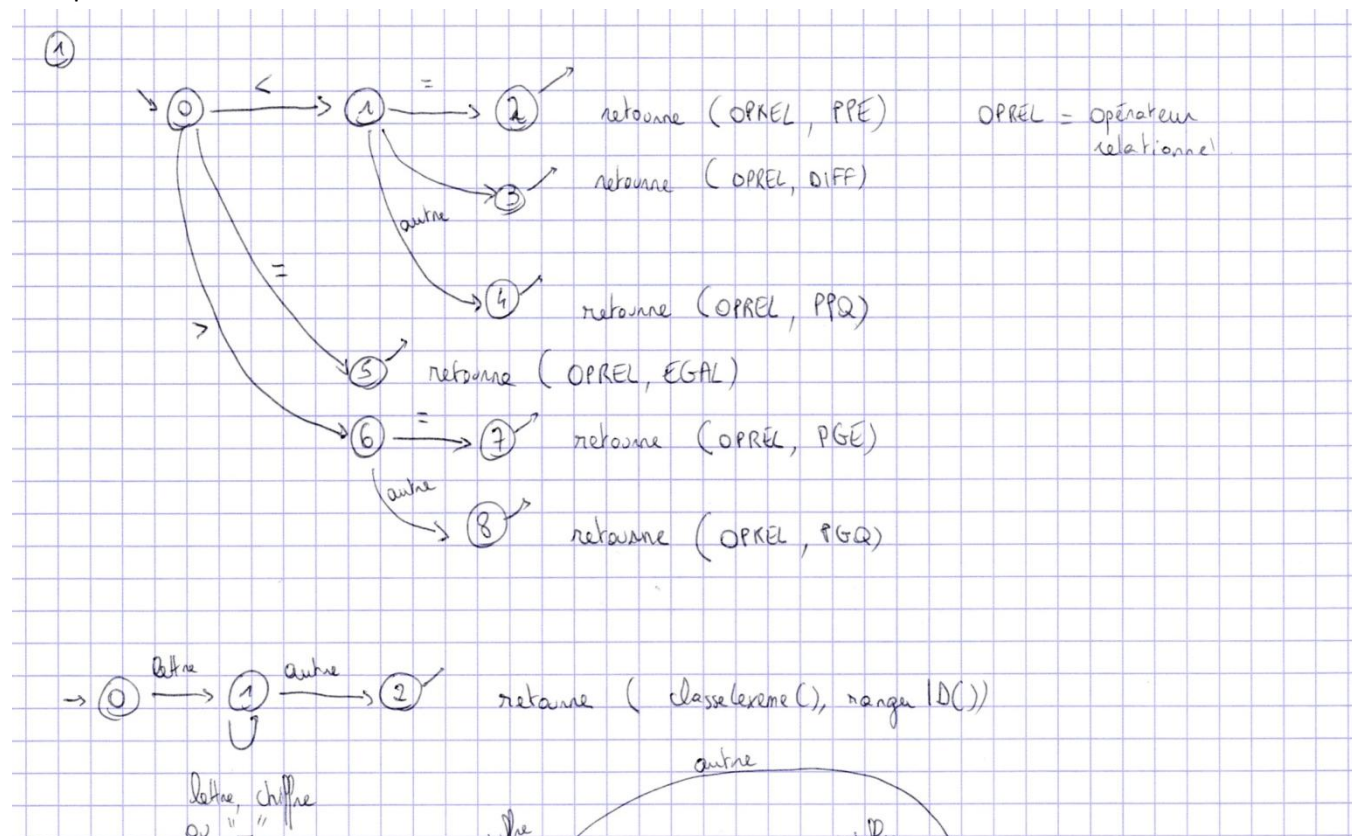 1
0 < 1 = 2 retourne (OPREL, PPE) OPREL = opérateur
relationnel.
3 retourne (OPREL, DIFF)
autre
4 retourne (OPREL, PPQ)
=
>
5 retourne (OPREL, EGAL)
6 = 7 retourne (OPREL, PGE)
autre
8 retourne (OPREL, PGQ)
0 lettre 1 autre 2 retourne (classelexeme(), rangerID())
autre
lettre, chiffre
ou "